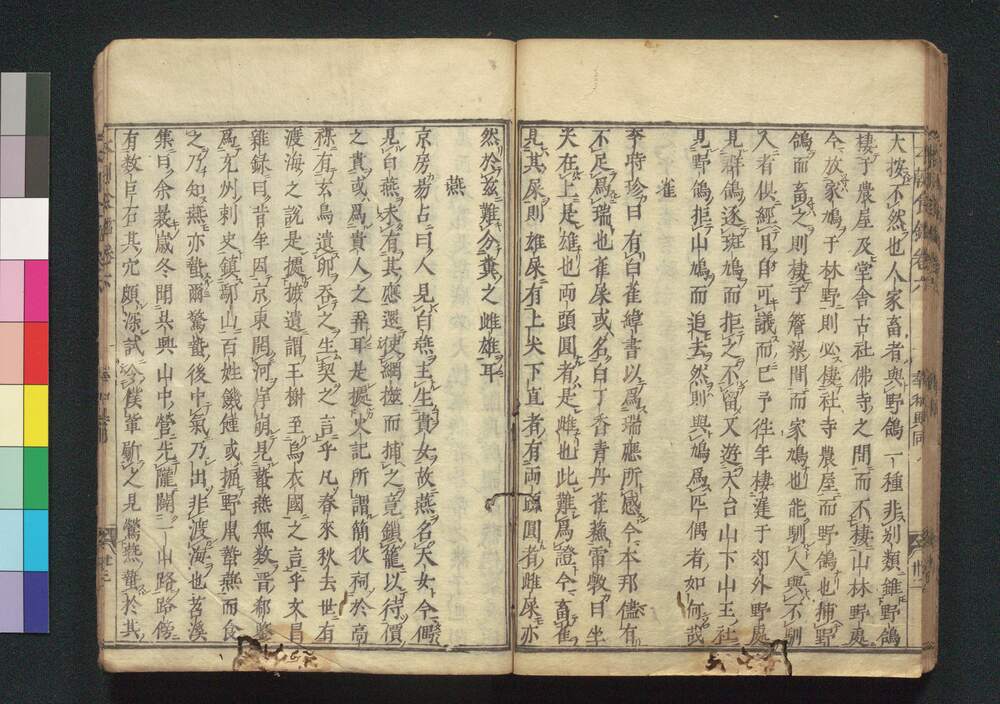 大按不然也人家畜者與野鴿一種非別類雖野鴿
棲于農屋及堂舍古社佛寺之間而不棲山林野處
今放家鳩于林野則必棲社寺農屋而野鴿也捕野
鴿而畜之則棲于簷梁間而家鳩也能馴人與不馴
入者似經自可議而已予往年棲遲于郊外野處
見群鴿逐斑鳩而拒之不留又遊天台山下山王社
見野鴿拒山鳩而追去然則與鳩為匹偶者如何哉
雀
李時珍曰有白雀緯書以為瑞應所感今本邦儘有
不足為瑞也雀屎或名白丁香青丹雀蘇雷斅曰坐
尖在上是雄也両頭圓者是雌也此難為證今畜雀
見其屎則雄屎有上尖下直者有両頭圓者雌屎亦
然於茲難分糞之雌雄耳
燕
京房易占曰人見白燕主生貴女故燕名天女今偶
見白燕未有其應還使網撫而捕之竟鎖籠以待價
之貴或為貴人之弄耳是據史記所謂簡狄祠於高
禖有玄鳥遺卵吞之生契之言乎凡春來秋去世有
渡海之說是據摭遺謂王榭至烏衣國之言乎文昌
雜録曰昔年因京東開河岸崩見蟄燕無数晋郗鑒
為兗州刺史鎮鄒山百姓饑饉或掘野鼠蟄燕而食
之乃知燕亦蟄爾驚蟄後中氣乃出非渡海也苕溪
集曰余曩歳冬間呉興山中營先隴闢一山路路傍
有数巨石其穴頗深試令僕輩斸之見鶯燕蟄於其